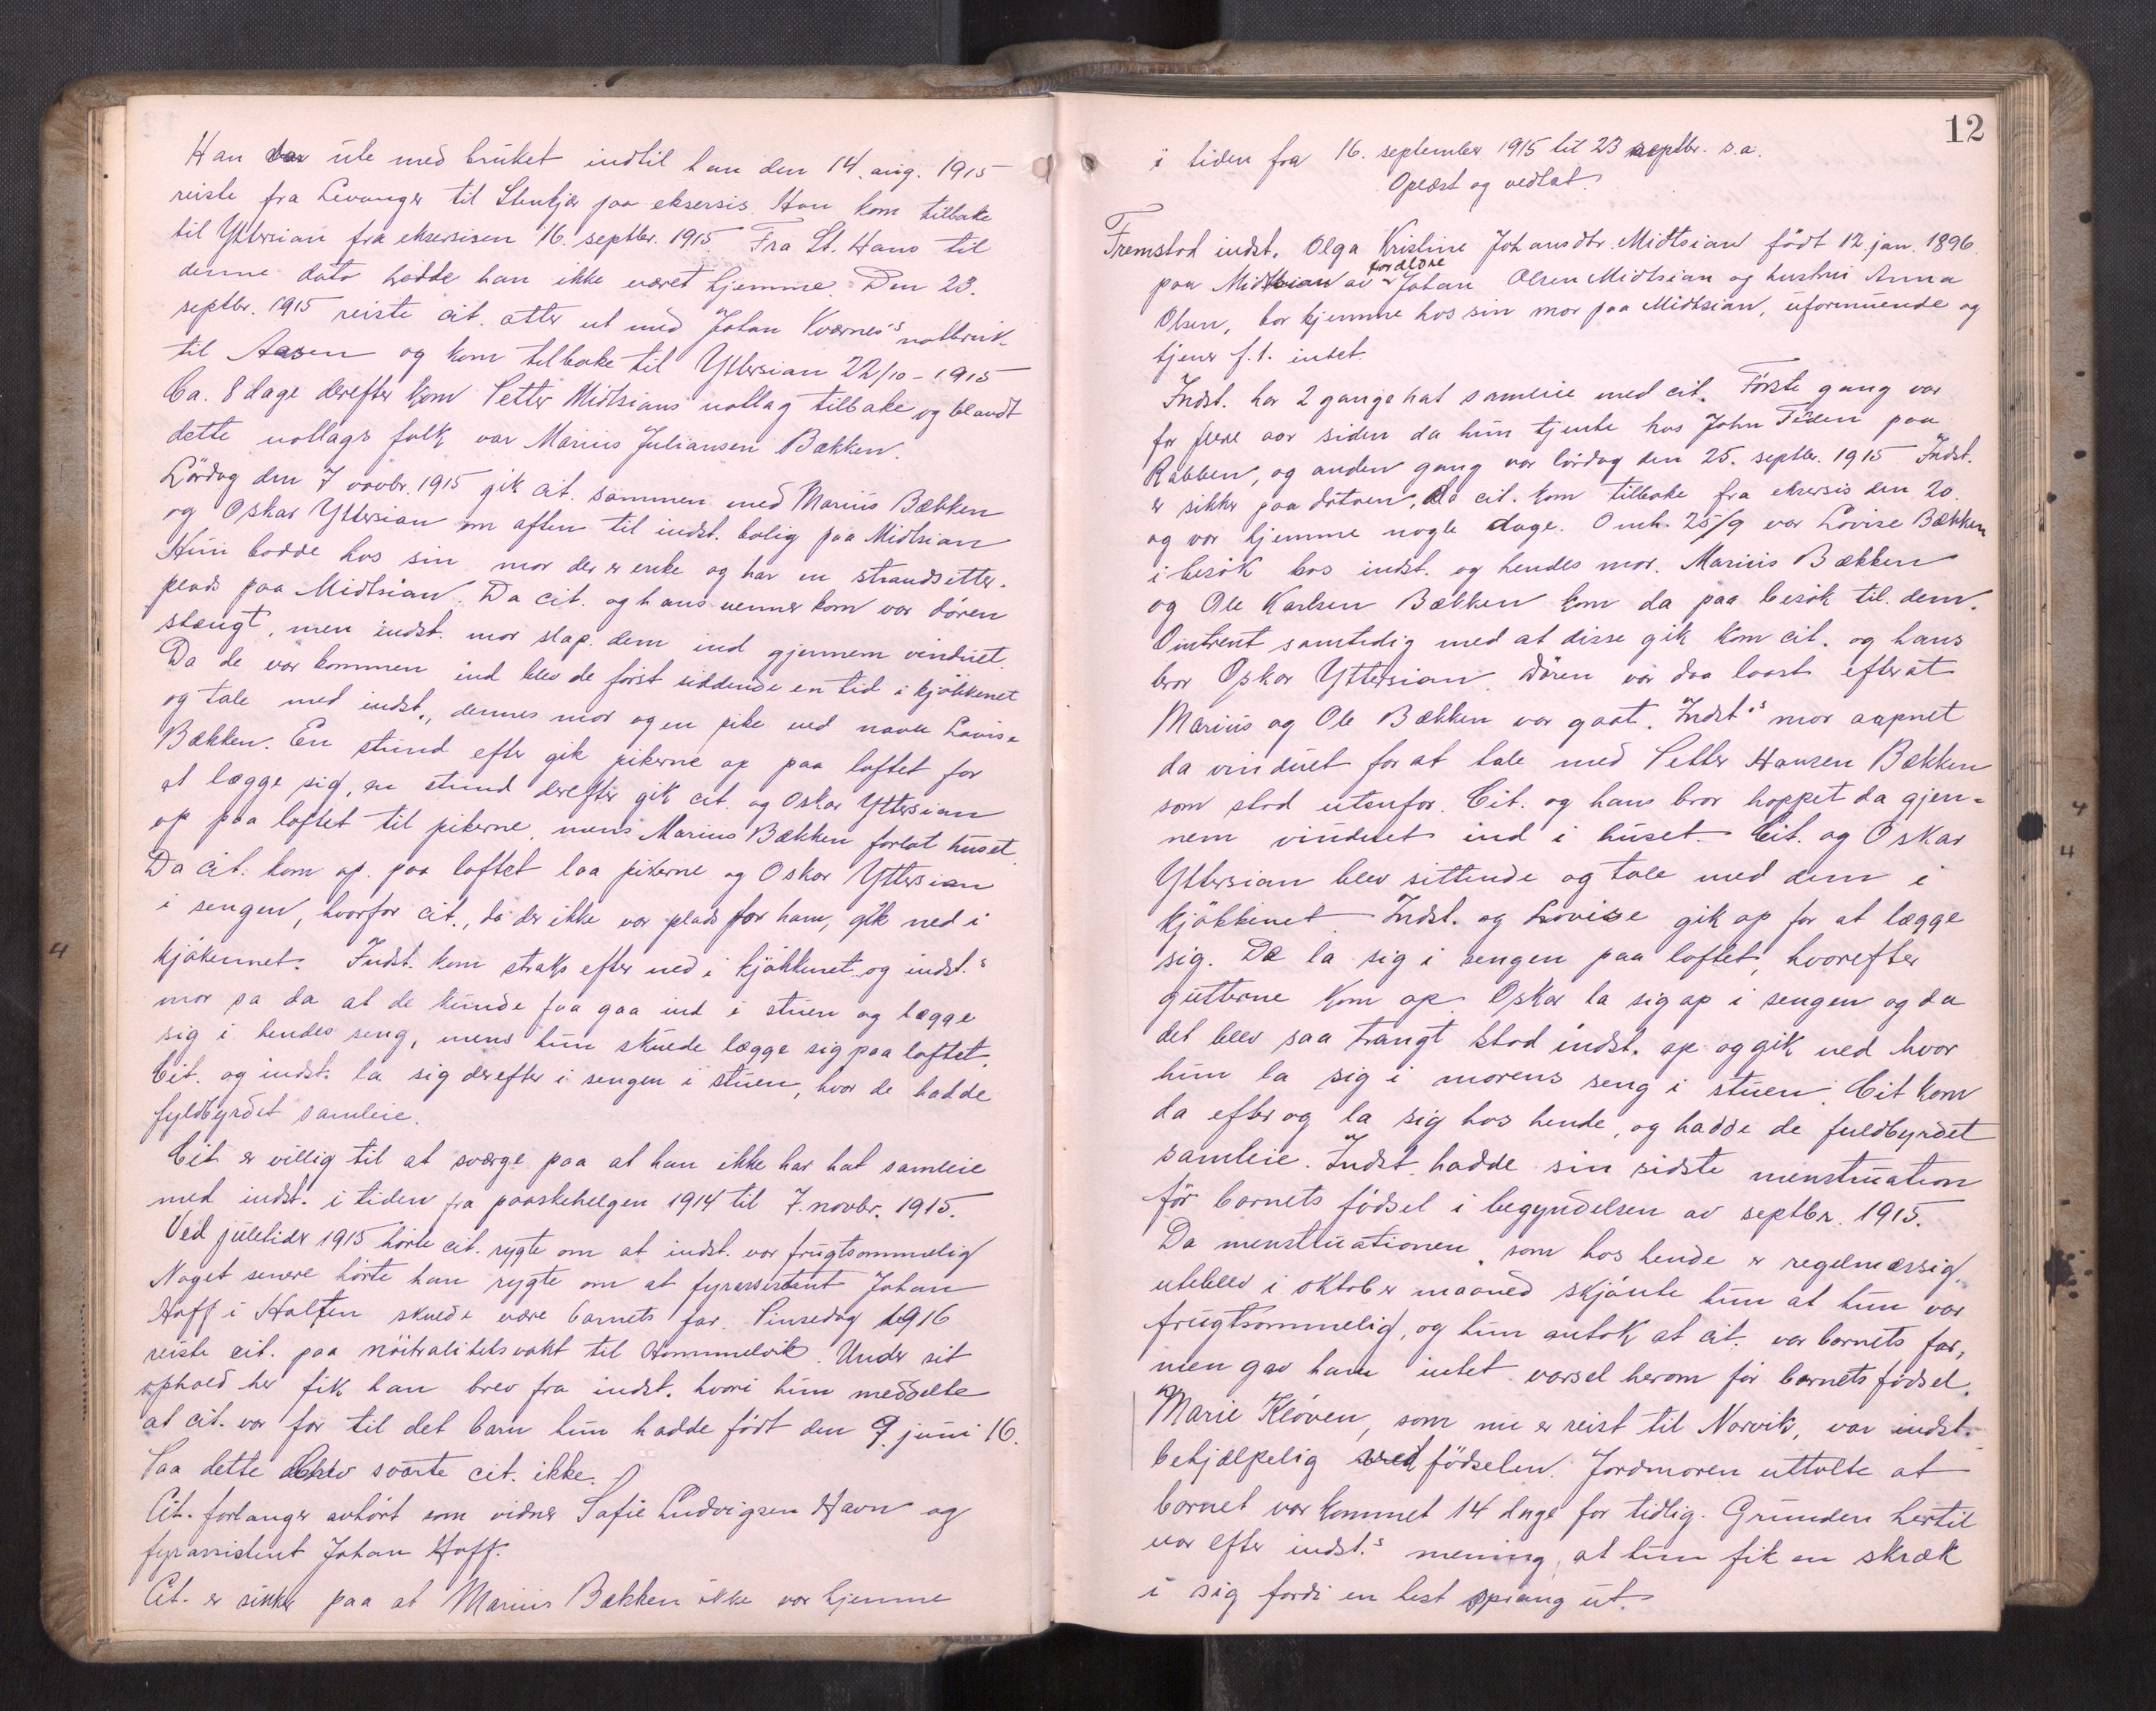 Han var ute med bruket indtil han den 14. aug. 1915
reiste fra Levanger til Stenkjær paa eksersis. Han kom tilbake
til Yttersian fra eksersisen 16. septbr. 1915. Fra St. Hans til
denne dato hadde han ikke været hjemme. Den 23.
septbr. 1915 reiste cit. atter ut med Johan Kværnes's notbruk
til Aasen og kom tilbake til Yttersian 22/10 - 1915
Ca. 8 dage derefter kom Petter Midtsians notlag tilbake og blandt
dette notlags folk var Marius Juliansen Bækken.
Lördag den 7 novbr. 1915 gik cit. sammen med Marius Bækken
og Oskar Yttersian om aften til indst. bolig paa Midtsian
Hun bodde hos sin mor der er enke og har en strandsitter-
plads paa Midtsian. Da cit. og hans venner kom var dören
stængt, men indst. mor slap dem ind gjennem vinduet.
Da de var kommen ind blev de först siddende en tid i kjökkenet
og tale med indst., dennes mor og en pike ved navn Lovise
Bækken. En stund efter gik pikerne op paa loftet for
at lægge sig, en stund derefter gik cit. og Oskar Yttersian
op paa loftet til pikerne, mens Marius Bækken forlot huset.
Da cit. kom op paa loftet laa pikerne og Oskar Yttersian
i sengen, hvorfor cit., da der ikke var plads for ham, gik ned i
kjökennet. Indst. kom straks efter ned i kjökkenet og indst.s
mor sa da at de kunde faa gaa ind i stuen og lægge
sig i hendes seng, mens hun skulde lægge sig paa loftet.
Cit. og indst. la sig derefter i sengen i stuen, hvor de hadde
fyldbyrdet samleie.
Cit. er villig til at sværge paa at han ikke har hat samleie
med indst. i tiden fra paaskehelgen 1914 til 7. novbr. 1915.
Ved juletider 1915 hörte cit. rygte om at indst. var frugtsommelig
Noget senere hörte han rygte om at fyrassistent Johan
Hoff i Halten skulde være barnets far. Pinsedag 1916
reiste cit. paa nöitralitetsvakt til Hommelvik. Under sit
ophold her fik han brev fra indst. hvori hun meddelte
at cit. var far til det barn hun hadde född den 9. juni 16.
Paa dette brev svarte cit. ikke.
Cit. forlanger avhört som vidner Sofie Ludvigsen Havn og
fyrassistent Johan Hoff.
Cit. er sikker paa at Marius Bækken ikke var hjemme
12
i tiden fra 16. september 1915 til 23 septbr. s.a.
Oplæst og vedtat.
Fremstod indst. Olga Kristine Johansdtr. Midtsian födt 12. jan. 1896
paa Midtsian av forældre Johan Olsen Midtsian og hustru Anna
Olsen, bor hjemme hos sin mor paa Midtsian, uformuende og
tjener f.t. intet.
Indst. har 2 gange hat samleie med cit. Förste gang var
for flere aar siden da hun tjente hos John Tiden paa
Rabben, og anden gang var lördag den 25. septbr. 1915 Indst.
er sikker paa datoen, da cit. kom tilbake fra eksersis den 20.
og var hjemme nogle dage. Omh. 25/9 var Lovise Bækken
i besök hos indst. og hendes mor. Marius Bækken
og Ole Karlsen Bækken kom da paa besök til dem.
Omtrent samtidig med at disse gik kom cit. og hans
bror Oskar Yttersian. Dören var daa laast efterat
Marius og Ole Bækken var gaat. Indst.s mor aapnet
da vinduet for at tale med Petter Hansen Bækken
som stod utenfor. Cit. og hans bror hoppet da gjen-
nem vinduet ind i huset. Cit. og Oskar
Yttersian blev sittende og tale med dem i
kjökkenet. Indst. og Lovise gik op for at lægge
sig. De la sig i sengen paa loftet, hvorefter
gutterne kom op. Oskar la sig op i sengen og da
det blev saa trangt stod indst. op og gik ned hvor
hun la sig i morens seng i stuen. Cit kom
da efter og la sig hos hende, og hadde de fuldbyrdet
samleie. Indst. hadde sin sidste menstruation
för barnets födsel i begyndelsen av septbr. 1915.
Da menstruationen, som hos hende er regelmæssig,
uteblev i oktober maaned skjönte hun at hun var
frugtsommelig, og hun antok at cit. var barnets far,
men gav ham intet varsel herom för barnets födsel.
Marie Klöven, som nu er reist til Narvik, var indst.
behjælpelig ved födselen. Jordmoren uttalte at
barnet var kommet 14 dage for tidlig. Grunden hertil
var efter indst.s mening, at hun fik en skræk
i sig fordi en hest sprang ut.